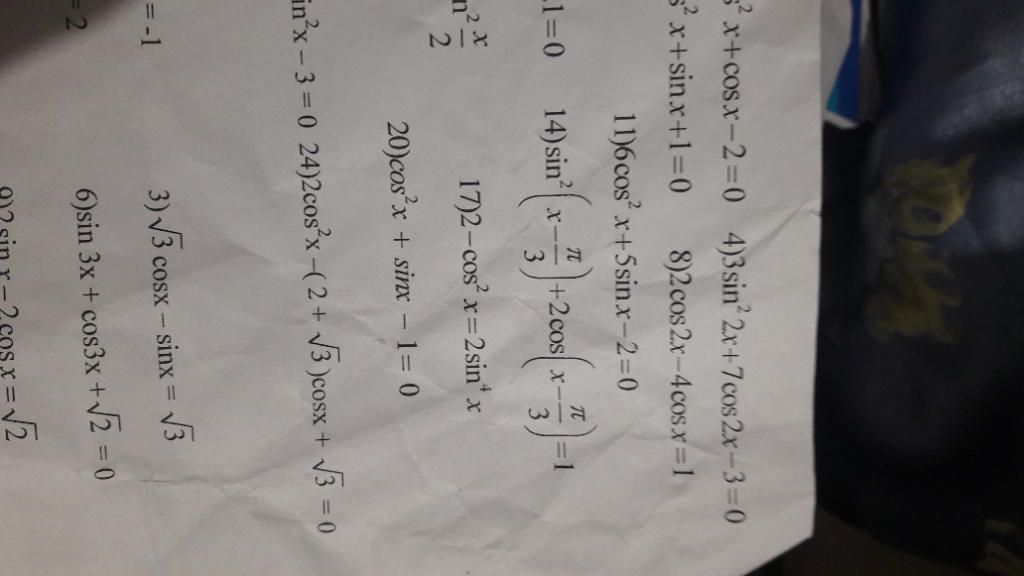 s² x+cosx−2=0 4)3sin² 2x+7cos2x−3=0
s² x+sinx+1=0 8)2cos2x−4cosx=1
11)6cos² x+5sinx−2=0
.1=0 14)sin²(x−π/3)+2cos(x−π/3)=1
n² x/2 17)2−cos² x=2sin⁴ x
20)cos²x + sinx − 1 = 0
in²x − 3 = 0 24)2cos²x−(2 + √3)cosx + √3 = 0
= -1 3)√3 cosx − sinx = √3
= 2 6)sin 3x + cos3x + √2 = 0
9)2 sin x − 2cos x = √2